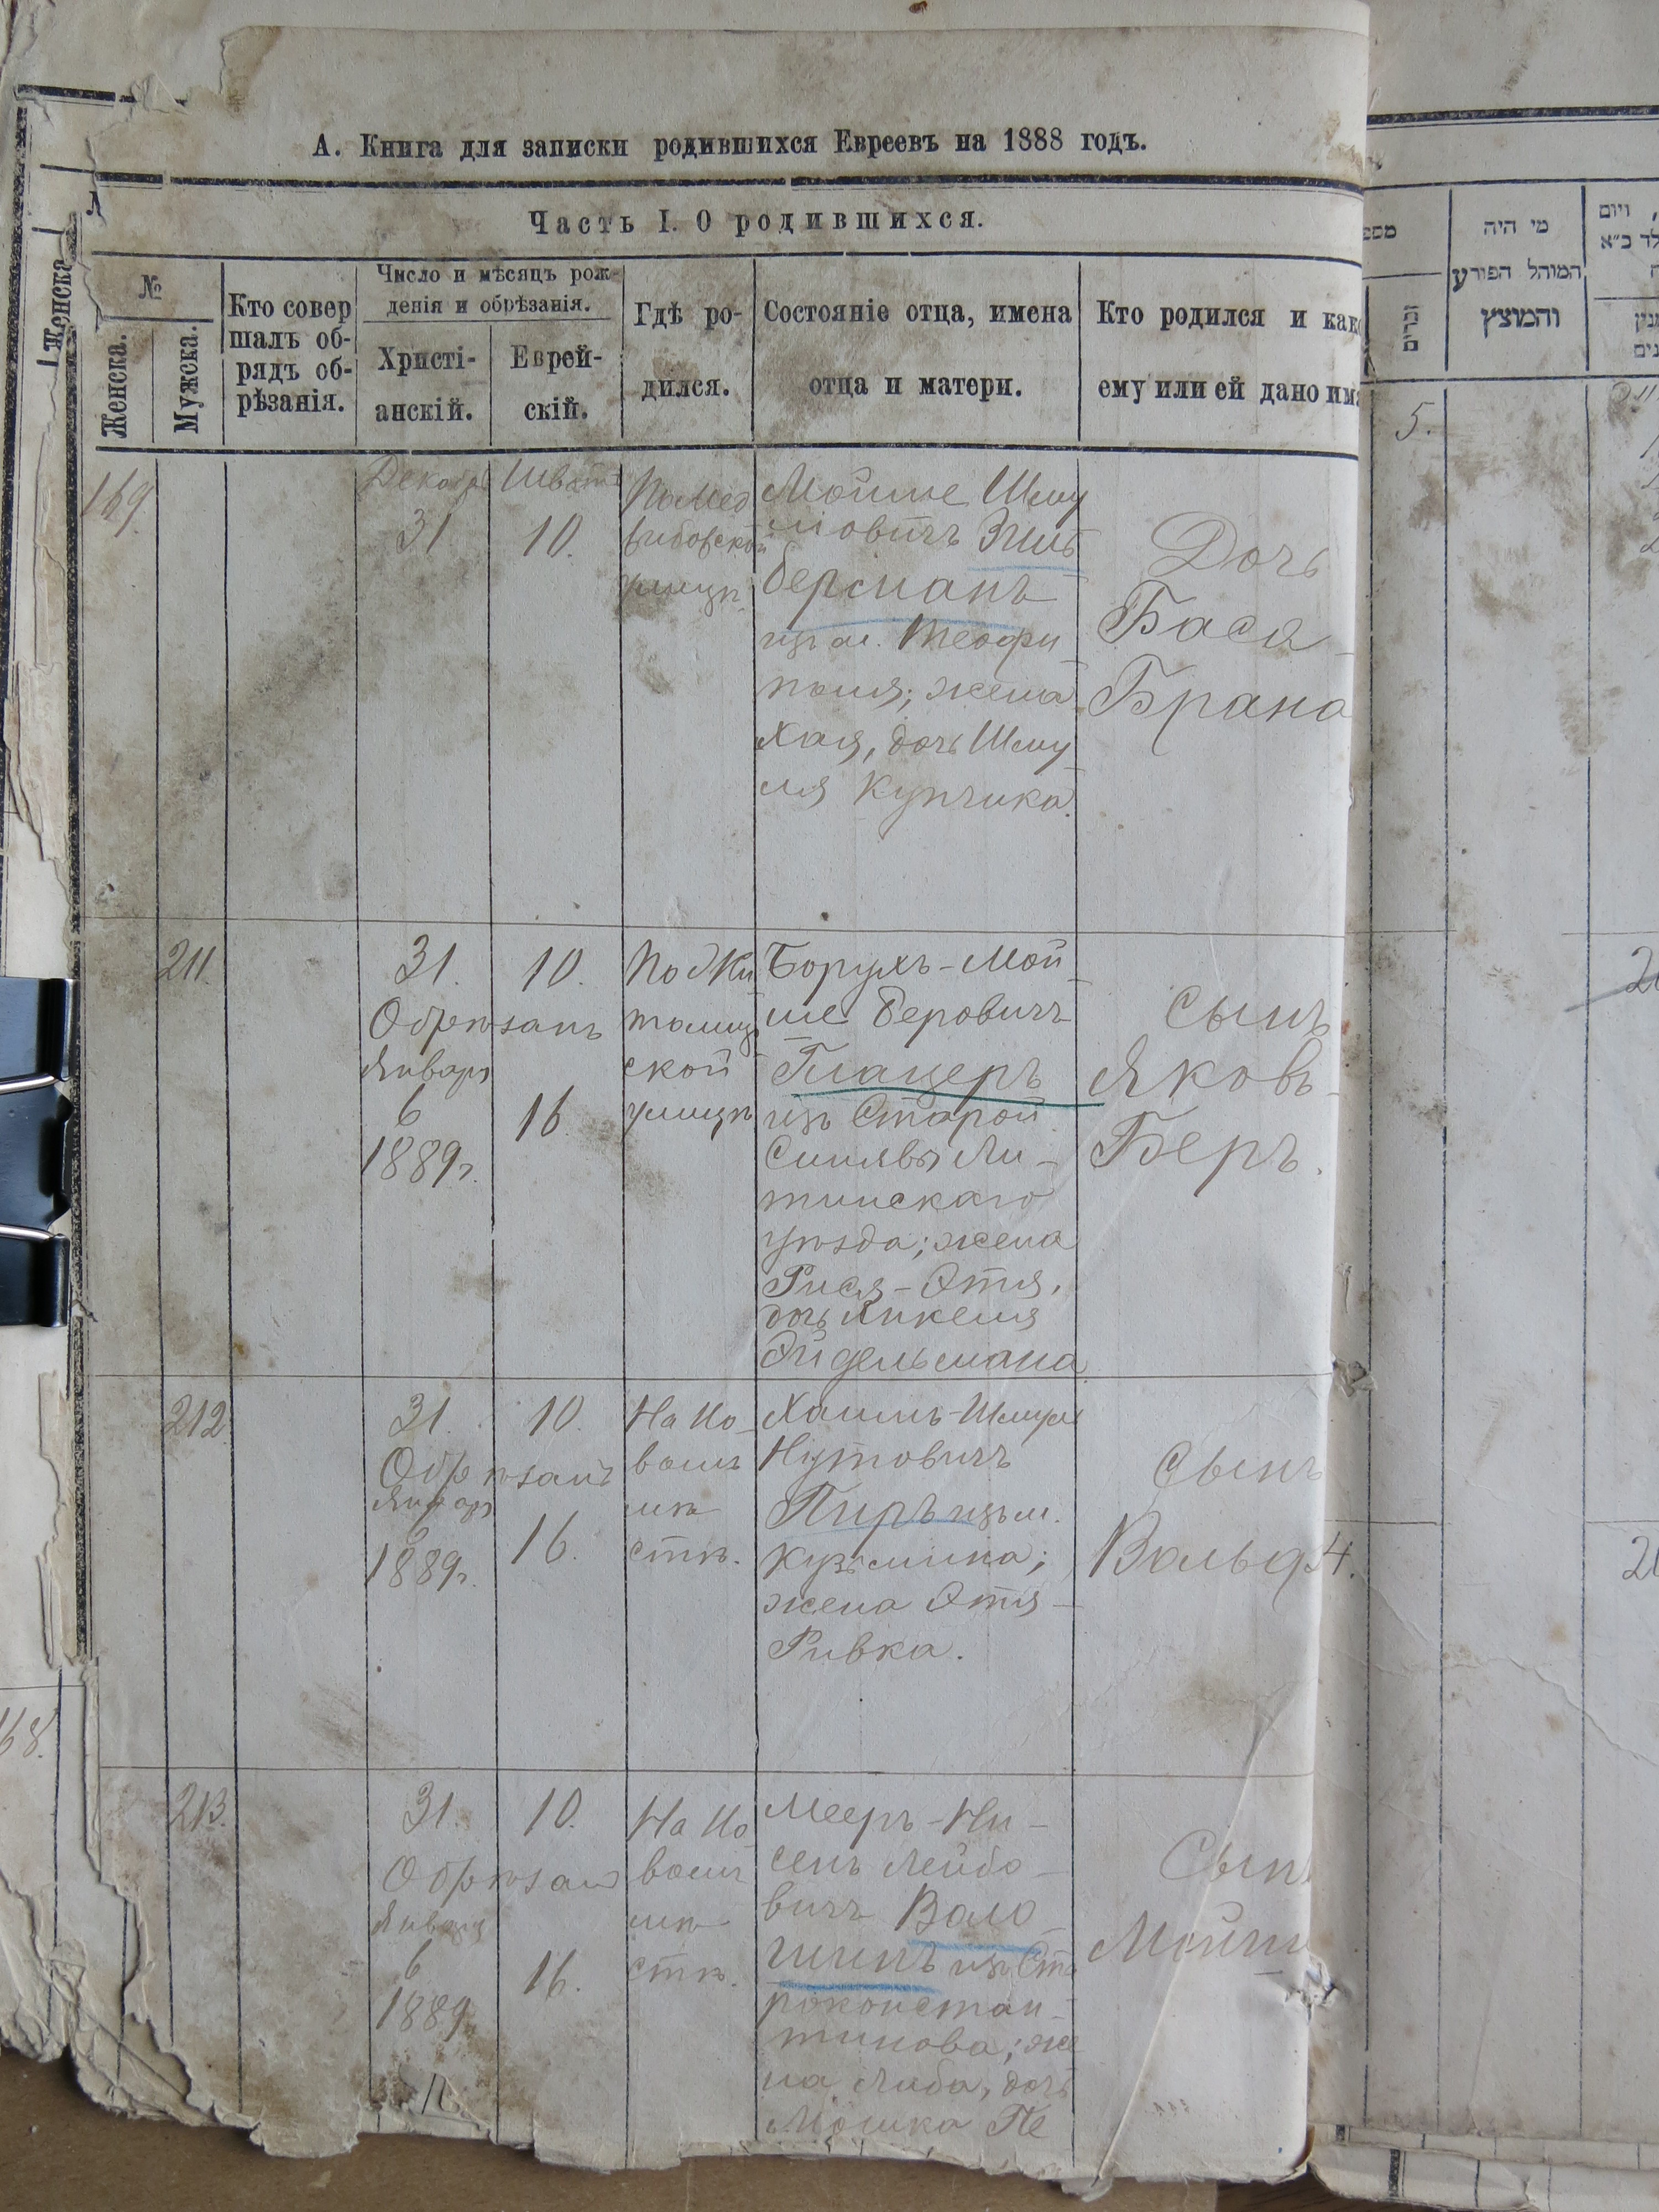 А. Книга для записки родившихся Евреевъ на 1888 годъ.
Часть I. О родившихся.
№
Женска.
Мужска.
Кто совер
шалъ об-
рядъ об-
рѣзанія.
Число и мѣсяцъ рож-
денія и обрѣзанія.
Христі-
анскій.
Еврей-
скій.
Гдѣ ро-
дился.
Состояніе отца, имена
отца и матери.
Кто родился и как
ему или ей дано им
169.
Декабрь
31
10.
улицѣ.
Мойше Шму
ліовичъ Зиль
берманъ
изъ м. Теофи
поля; жена
Хая, дочь Шму
ля Купчика.
Дочь
Бася-
Брана
211.
31.
Обрѣзанъ
Января
6
1889г.
10.
16
По Жи
томир
ской
улицѣ
Борухъ-Мой
ше Беровичъ
Глацеръ
изъ Старой
Синявы Ли-
тинскаго
уѣзда; жена
Рися-Этя,
дочь Янкеля
Эйдельмана
Сынъ
Яковъ-
Беръ.
212.
31.
Обрѣзанъ
Января
6
1889г.
10.
16.
На Но
вомъ
мѣ
стѣ.
Хаимъ-Шмуль
Нутовичъ
Пиръ изъ м.
Кузьмина;
жена Этя-
Ривка.
Сынъ
Вольф
213.
31.
Обрѣзан
Января
6
1889
10.
16.
На Но
вомъ
мѣ
стѣ.
Мееръ-Ни-
сенъ Лейбо-
вичъ Воло
шинъ изъ Ста
роконстан-
тинова; же
на Либа, дочь
Мошка Пе
Сынъ
Мойш
Женска
168.
זכרים
מי היה
המוהל הפורע
והמוצץ
ויום
5.
4.